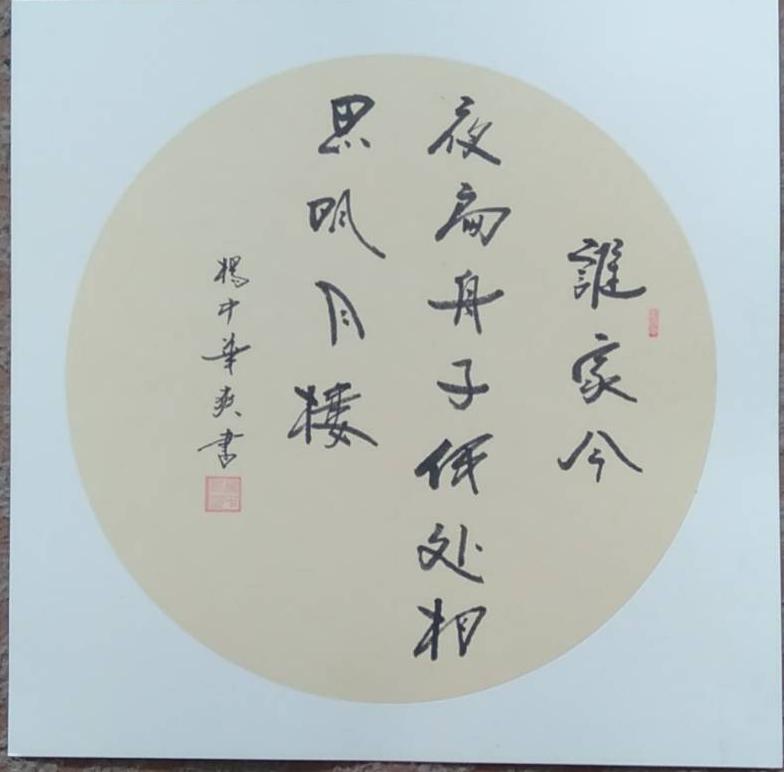 誰家今
夜扁舟子何处相
思明月楼
楊中華爽書